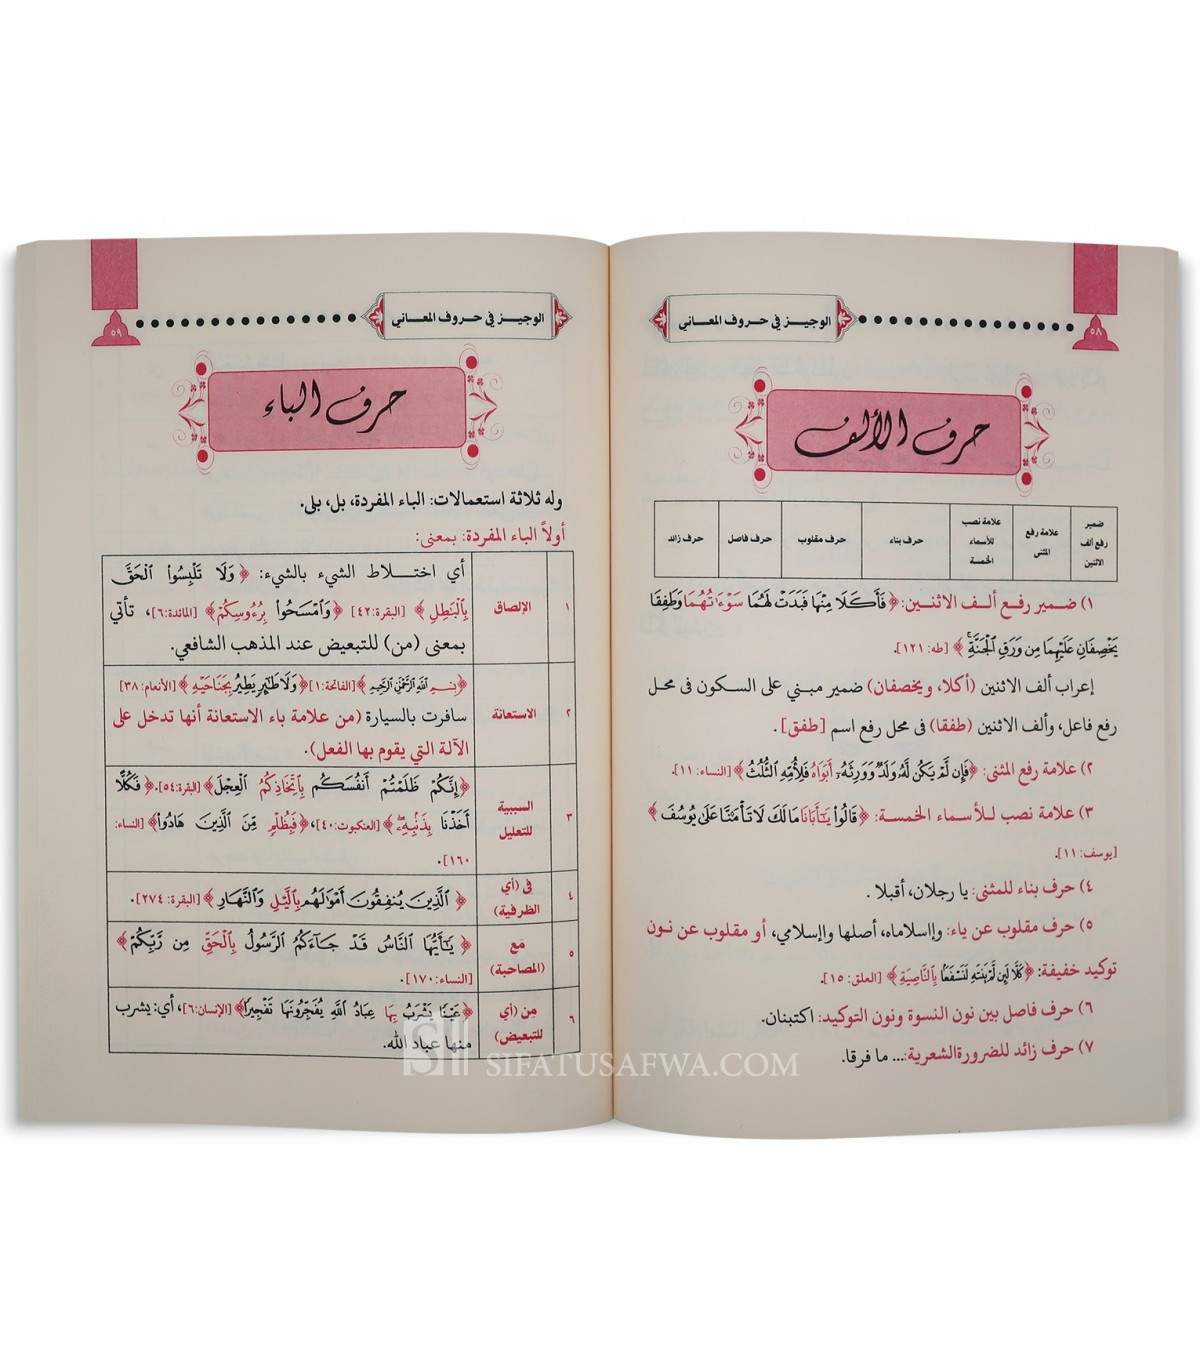 الوجيز في حروف المعاني
٥٨
حرف الألف
ضمير رفع ألف الاثنين
علامة رفع المثنى
علامة نصب للأسماء الخمسة
حرف بناء
حرف مقلوب
حرف فاصل
حرف زائد
١) ضمير رفع ألف الاثنين: ﴿فَأَكَلَا مِنْهَا فَبَدَتْ لَهُمَا سَوْءَاتُهُمَا وَطَفِقَا
يَخْصِفَانِ عَلَيْهِمَا مِن وَرَقِ الْجَنَّةِ﴾ [طه: ١٢١].
إعراب ألف الاثنين (أكلا، ويخصفان) ضمير مبني على السكون في محل
رفع فاعل، وألف الاثنين (طفقا) في محل رفع اسم [طفق].
٢) علامة رفع المثنى: ﴿فَإِن لَّمْ يَكُن لَّهُ وَلَدٌ وَوَرِثَهُ أَبَوَاهُ فَلِأُمِّهِ الثُّلُثُ﴾ [النساء: ١١].
٣) علامة نصب للأسماء الخمسة: ﴿قَالُوا يَا أَبَانَا مَا لَكَ لَا تَأْمَنَّا عَلَىٰ يُوسُفَ﴾
[يوسف: ١١].
٤) حرف بناء للمثنى: يا رجلان، أقبلا.
٥) حرف مقلوب عن ياء: واإسلاماه، أصلها واإسلامي، أو مقلوب عن نون
توكيد خفيفة: ﴿كَلَّا لَئِن لَّمْ يَنتَهِ لَنَسْفَعًا بِالنَّاصِيَةِ﴾ [العلق: ١٥].
٦) حرف فاصل بين نون النسوة ونون التوكيد: اكتبنان.
٧) حرف زائد للضرورة الشعرية:... ما فرقا.
الوجيز في حروف المعاني
٥٩
حرف الباء
وله ثلاثة استعمالات: الباء المفردة، بل، بلى.
أولاً الباء المفردة: بمعنى:
١
الإلصاق
أي اختلاط الشيء بالشيء: ﴿وَلَا تَلْبِسُوا الْحَقَّ
بِالْبَاطِلِ﴾ [البقرة:٤٢] ﴿وَامْسَحُوا بِرُءُوسِكُمْ﴾ [المائدة:٦]، تأتي
بمعنى (من) للتبعيض عند المذهب الشافعي.
٢
الاستعانة
﴿بِسْمِ اللَّهِ الرَّحْمَٰنِ الرَّحِيمِ﴾[الفاتحة:١]﴿وَلَا طَائِرٍ يَطِيرُ بِجَنَاحَيْهِ﴾[الأنعام:٣٨]
سافرت بالسيارة (من علامة باء الاستعانة أنها تدخل على
الآلة التي يقوم بها الفعل).
٣
السببية
للتعليل
﴿إِنَّكُمْ ظَلَمْتُمْ أَنفُسَكُم بِاتِّخَاذِكُمُ الْعِجْلَ﴾[البقرة:٥٤]. ﴿فَكُلًّا
أَخَذْنَا بِذَنبِهِ﴾[العنكبوت:٤٠]، ﴿فَبِظُلْمٍ مِّنَ الَّذِينَ هَادُوا﴾[النساء:
١٦٠].
٤
في (أي
الظرفية)
﴿الَّذِينَ يُنفِقُونَ أَمْوَالَهُم بِاللَّيْلِ وَالنَّهَارِ﴾[البقرة: ٢٧٤].
٥
مَع
(المصاحبة)
﴿يَا أَيُّهَا النَّاسُ قَدْ جَاءَكُمُ الرَّسُولُ بِالْحَقِّ مِن رَّبِّكُمْ﴾
[النساء:١٧٠].
٦
مِن (أي
للتبعيض)
﴿عَيْنًا يَشْرَبُ بِهَا عِبَادُ اللَّهِ يُفَجِّرُونَهَا تَفْجِيرًا﴾[الإنسان:٦]، أي: يشرب
منها عباد الله.
SIFATUSAFWA.COM